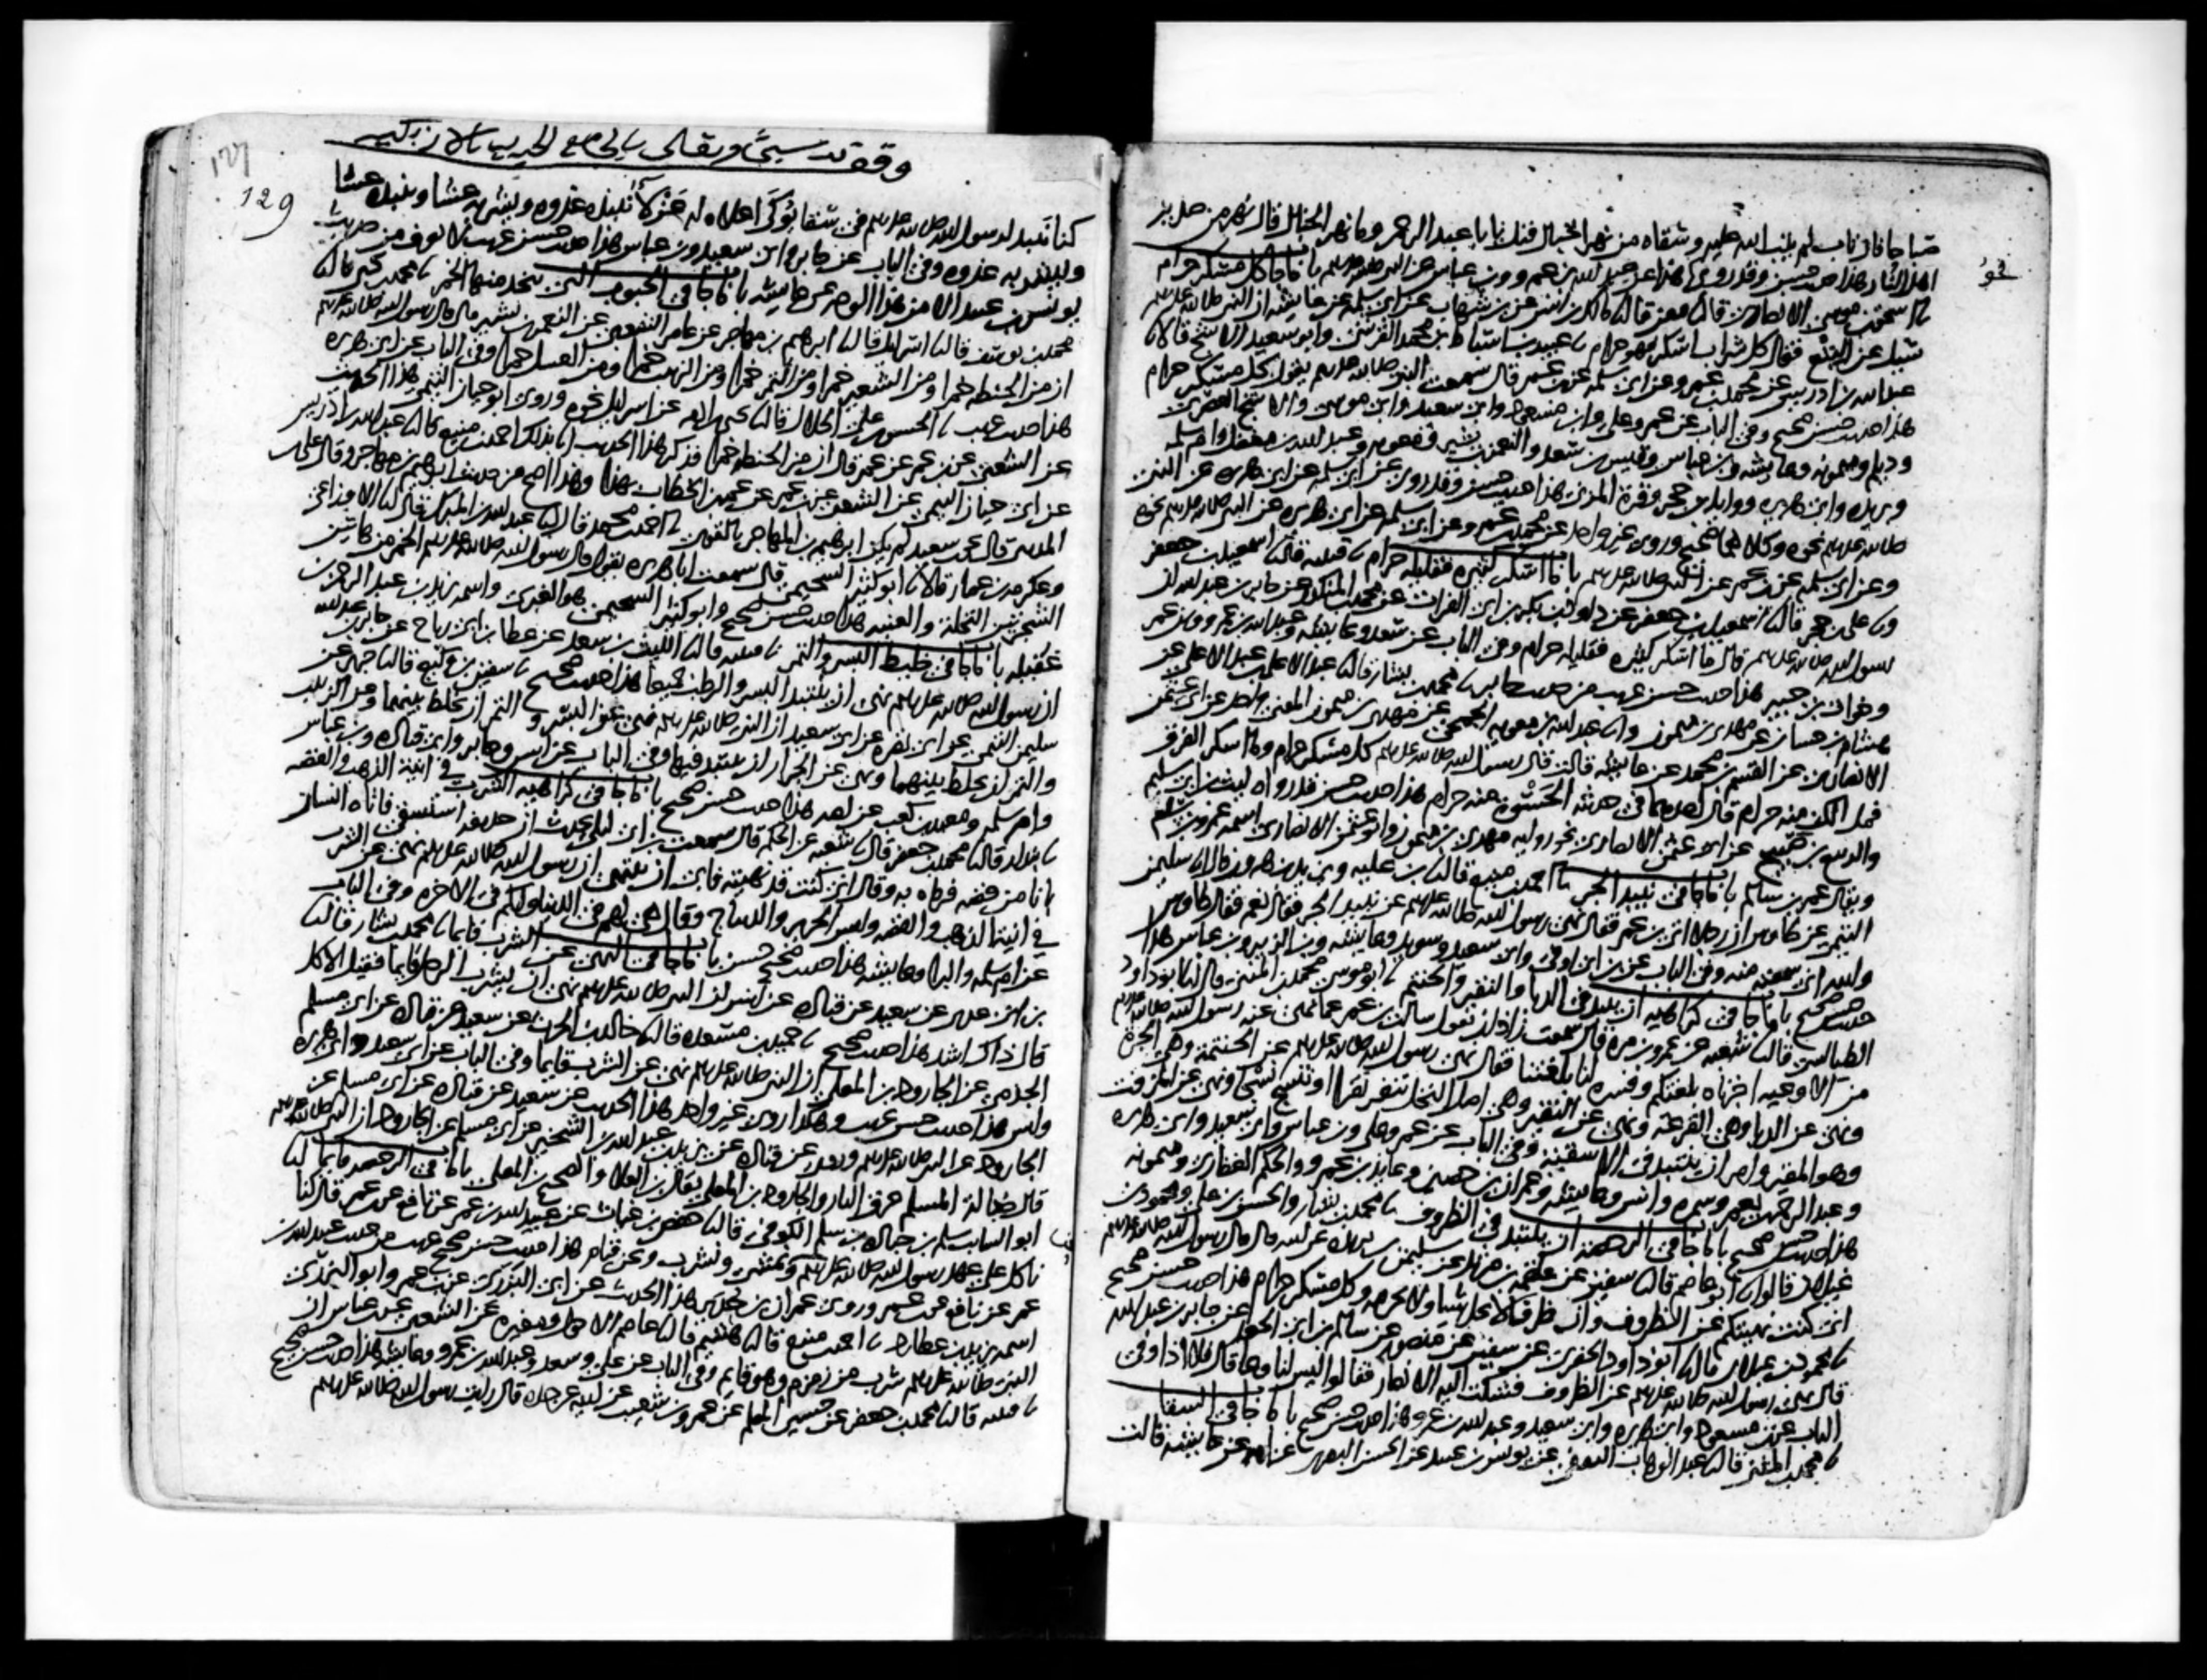 صباحا فان تاب لم يتب الله عليه وسقاه من نهر الخبال قيل يا با عبد الرحمن وما نهر الخبال قال نهر من صديد
اهل النار هذا حديث حسن وقد روي نحو هذا عن عبد الله بن عمرو وبن عباس عن النبي صلى الله عليه وسلم باب ما جا كل مسكر حرام
نا اسحق بن موسى الانصاري قال نا معن قال نا مالك بن انس عن بن شهاب عن ابي سلمه عن عايشه ان النبي صلى الله عليه وسلم
سئل عن البتع فقال كل شراب اسكر فهو حرام نا عبيد بن اسباط بن محمد القرشي وابو سعيد الاشج قالا نا
عبد الله بن ادريس عن محمد بن عمرو عن ابي سلمه عن بن عمر قال سمعت النبي صلى الله عليه وسلم يقول كل مسكر حرام
هذا حديث حسن صحيح وفي الباب عن عمر وعلي وابن مسعود وابي سعيد وابي موسى والاشج العصري
وديلم وميمونه وعايشه وبن عباس وقيس بن سعد والنعمن بن بشير ومعويه وعبد الله بن مغفل وام سلمه
وبريده وابي هريره ووايل بن حجر وقرة المزني هذا حديث حسن وقد روي عن ابي سلمه عن ابي هريره عن النبي
صلى الله عليه وسلم نحوه وكلاهما صحيح وروى غير واحد عن محمد بن عمرو عن ابي سلمه عن ابي هريره عن النبي صلى الله عليه وسلم نحوه
وعن ابي سلمه عن بن عمر عن النبي صلى الله عليه وسلم باب ما اسكر كثيره فقليله حرام نا قتيبه قال نا اسمعيل بن جعفر
ونا علي بن حجر قال نا اسمعيل بن جعفر عن داود بن بكر بن ابي الفرات عن محمد بن المنكدر عن جابر بن عبد الله ان
رسول الله صلى الله عليه وسلم قال ما اسكر كثيره فقليله حرام وفي الباب عن سعد وعايشه وعبد الله بن عمرو وبن عمر
وخوات بن جبير هذا حديث حسن غريب من حديث جابر نا محمد بن بشار قال نا عبد الاعلى بن عبد الاعلى عن
هشام بن حسان عن مهدي بن ميمون ونا عبد الله بن معويه الجمحي عن مهدي بن ميمون المعنى واحد عن ابي عثمن
الانصاري عن القسم بن محمد عن عايشه قالت قال رسول الله صلى الله عليه وسلم كل مسكر حرام وما اسكر الفرق
فمل الكف منه حرام قال احدهما في حديثه الحسوة منه حرام هذا حديث حسن قد رواه ليث بن ابي سليم
والربيع بن صبيح عن ابي عثمن الانصاري نحو رواية مهدي بن ميمون وابو عثمن الانصاري اسمه عمرو بن سالم
ويقال عمر بن سالم باب ما جا في نبيذ الجر نا احمد بن منيع قال نا بن عليه ويزيد بن هرون قالا نا سليمن
التيمي عن طاوس ان رجلا اتى بن عمر فقال نهى رسول الله صلى الله عليه وسلم عن نبيذ الجر فقال نعم فقال طاوس
والله اني سمعته منه وفي الباب عن بن ابي اوفى وابي سعيد وسويد وعايشه وبن الزبير وبن عباس هذا
حديث حسن صحيح باب ما جا في كراهيه ان ينبذ في الدبا والنقير والحنتم نا ابو موسى محمد بن المثنى قال نا ابو داود
الطيالسي قال نا شعبه عن عمرو بن مره قال سمعت زاذان يقول سالت بن عمر عما نهى عنه رسول الله صلى الله عليه وسلم
من الاوعيه اخبرناه بلغتكم وفسره لنا بلغتنا فقال نهى رسول الله صلى الله عليه وسلم عن الحنتمة وهي الجرة
ونهى عن الدبا وهي القرعه ونهى عن النقير وهي اصل النخل تنقر نقرا او تنسج نسجا ونهى عن المزفت
وهو المقير وامر ان ينتبذ في الاسقيه وفي الباب عن عمر وعلي وبن عباس وابي سعيد وابي هريره
وعبد الرحمن بن يعمر وسمره وانس وعايشه وعمران بن حصين وعايذ بن عمرو والحكم الغفاري وميمونه
هذا حديث حسن صحيح باب ما جا في الرخصة ان ينتبذ في الظروف نا محمد بن بشار والحسن بن علي ومحمود بن
غيلان قالوا نا ابو عاصم قال نا سفين عن علقمه بن مرثد عن سليمن بن بريده عن ابيه قال قال رسول الله صلى الله عليه وسلم
اني كنت نهيتكم عن الظروف وان ظرفا لا يحل شيا ولا يحرمه وكل مسكر حرام هذا حديث حسن صحيح
نا محمود بن غيلان قال نا ابو داود الحفري عن سفين عن منصور عن سالم بن ابي الجعد عن جابر بن عبد الله
قال نهى رسول الله صلى الله عليه وسلم عن الظروف فشكت اليه الانصار فقالوا ليس لنا وعا قال فلا اذا وفي
الباب عن بن مسعود وابي هريره وابي سعيد وعبد الله بن عمرو هذا حديث حسن صحيح باب ما جا في السقا
نا محمد بن المثنى قال نا عبد الوهاب الثقفي عن يونس بن عبيد عن الحسن البصري عن امه عن عايشه قالت
129
كنا ننبذ لرسول الله صلى الله عليه وسلم في سقا يوكى اعلاه له عزلا ننبذه غدوه ويشربه عشا وننبذه عشا
ويشربه غدوه وفي الباب عن جابر وابي سعيد وبن عباس هذا حديث حسن غريب لا نعرفه من حديث
يونس بن عبيد الا من هذا الوجه عن عايشه باب ما جا في الحبوب التي يتخذ منها الخمر نا محمد بن يحيى قال نا
محمد بن يوسف قال نا اسرايل قال نا ابرهيم بن مهاجر عن عامر الشعبي عن النعمن بن بشير قال قال رسول الله صلى الله عليه وسلم
ان من الحنطه خمرا ومن الشعير خمرا ومن التمر خمرا ومن الزبيب خمرا ومن العسل خمرا وفي الباب عن ابي هريره
هذا حديث غريب نا الحسن بن علي الخلال قال نا يحيى بن ادم عن اسرايل نحوه وروى ابو حيان التيمي هذا الحديث
عن الشعبي عن بن عمر عن عمر قال ان من الحنطه خمرا فذكر هذا الحديث نا بذلك احمد بن منيع نا عبد الله بن ادريس
عن ابي حيان التيمي عن الشعبي عن بن عمر عن عمر بن الخطاب بهذا وهذا اصح من حديث ابرهيم بن مهاجر وقال علي بن
المديني قال يحيى بن سعيد لم يكن ابرهيم بن المهاجر بالقوي نا احمد بن محمد قال نا عبد الله بن المبارك قال نا الاوزاعي
وعكرمه بن عمار قالا نا ابو كثير السحيمي قال سمعت ابا هريره يقول قال رسول الله صلى الله عليه وسلم الخمر من هاتين
الشجرتين النخلة والعنبه هذا حديث حسن صحيح وابو كثير السحيمي هو الغبري واسمه يزيد بن عبد الرحمن بن
غفيله باب ما جا في خليط البسر والتمر نا قتيبه قال نا الليث بن سعد عن عطا بن ابي رباح عن جابر بن عبد الله
ان رسول الله صلى الله عليه وسلم نهى ان ينتبذ البسر والرطب جميعا هذا حديث صحيح نا سفين بن وكيع قال نا جرير عن
سليمن التيمي عن ابي نضره عن ابي سعيد ان النبي صلى الله عليه وسلم نهى عن البسر والتمر ان يخلط بينهما وعن الزبيب
والتمر ان يخلط بينهما ونهى عن الجرار ان ينتبذ فيها وفي الباب عن انس وجابر وابي قتاده وبن عباس
وام سلمه ومعبد بن كعب عن امه هذا حديث حسن صحيح باب ما جا في كراهيه الشرب في انية الذهب والفضه
نا بندار قال نا محمد بن جعفر قال نا شعبه عن الحكم قال سمعت بن ابي ليلى يحدث ان حذيفه استسقى فاتاه انسان
بانا من فضه فرماه به وقال اني كنت قد نهيته فابى ان ينتهي ان رسول الله صلى الله عليه وسلم نهى عن الشرب
في انية الذهب والفضه ولبس الحرير والديباج وقال هي لهم في الدنيا ولكم في الاخره وفي الباب
عن ام سلمه والبرا وعايشه هذا حديث صحيح حسن باب ما جا في النهي عن الشرب قايما نا محمد بن بشار قال نا
بن ابي عدي عن سعيد عن قتاده عن انس ان النبي صلى الله عليه وسلم نهى ان يشرب الرجل قايما فقيل الاكل
قال ذاك اشد هذا حديث صحيح نا حميد بن مسعده قال نا خالد بن الحرث عن سعيد عن قتاده عن ابي مسلم
الجذمي عن الجارود بن المعلى ان النبي صلى الله عليه وسلم نهى عن الشرب قايما وفي الباب عن ابي سعيد وابي هريره
وانس هذا حديث حسن غريب وهكذا روى غير واحد هذا الحديث عن سعيد عن قتاده عن ابي مسلم عن
الجارود عن النبي صلى الله عليه وسلم وروي عن قتاده عن يزيد بن عبد الله بن الشخير عن ابي مسلم عن الجارود ان النبي صلى الله عليه وسلم
قال ضالة المسلم حرق النار والجارود بن المعلى يقال بن العلا والصحيح بن المعلى باب ما جا في الرخصه قايما نا
ابو السايب سلم بن جناده بن سلم الكوفي قال نا حفص بن غياث عن عبيد الله بن عمر عن نافع عن بن عمر قال كنا
ناكل على عهد رسول الله صلى الله عليه وسلم ونحن نمشي ونشرب ونحن قيام هذا حديث حسن صحيح غريب من حديث عبيد الله بن
عمر عن نافع عن بن عمر وروى عمران بن حدير هذا الحديث عن ابي البزري عن بن عمر وابو البزري
اسمه يزيد بن عطارد نا احمد بن منيع قال نا هشيم قال نا عاصم الاحول ومغيره عن الشعبي عن بن عباس ان
النبي صلى الله عليه وسلم شرب من زمزم وهو قايم وفي الباب عن علي وسعد وعبد الله بن عمرو وعايشه هذا حديث حسن صحيح
نا قتيبه قال نا محمد بن جعفر عن حسين المعلم عن عمرو بن شعيب عن ابيه عن جده قال رايت رسول الله صلى الله عليه وسلم